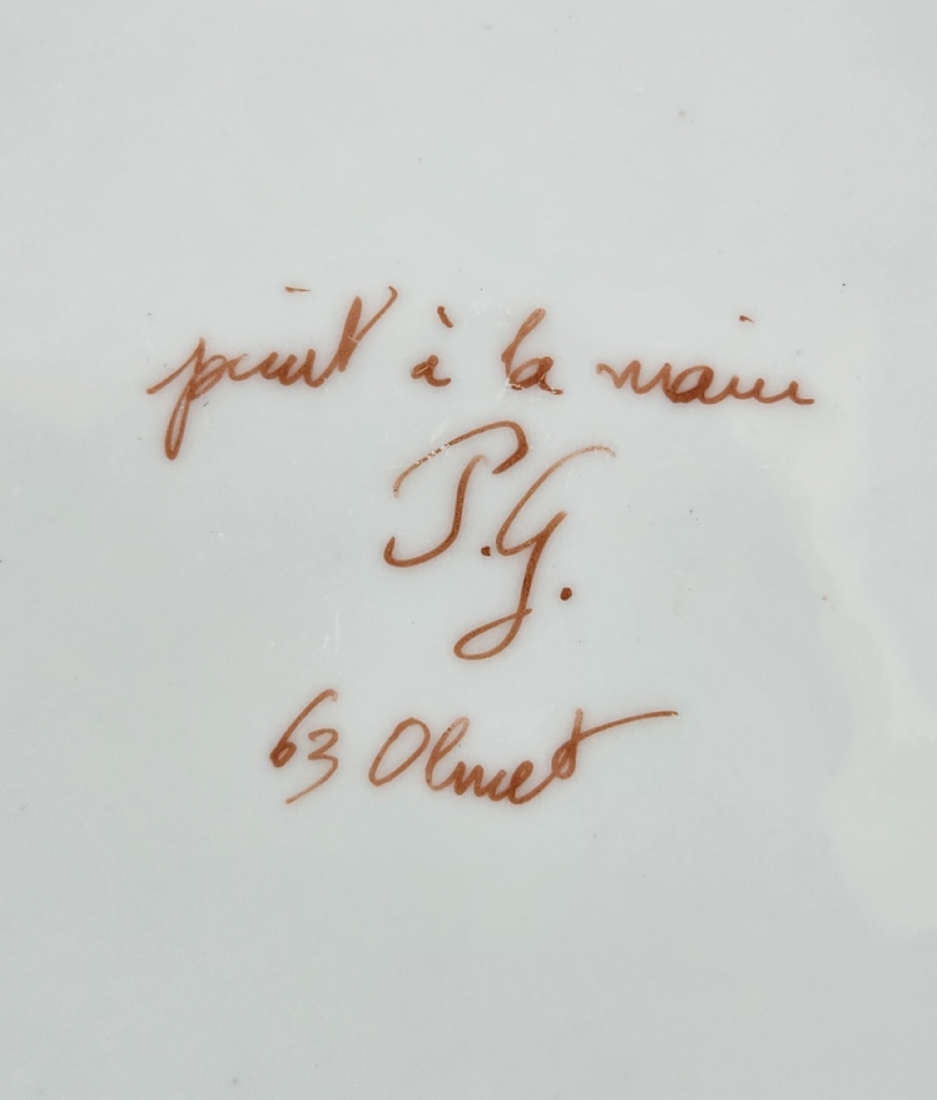 peint à la main
P.G.
63 Olmet